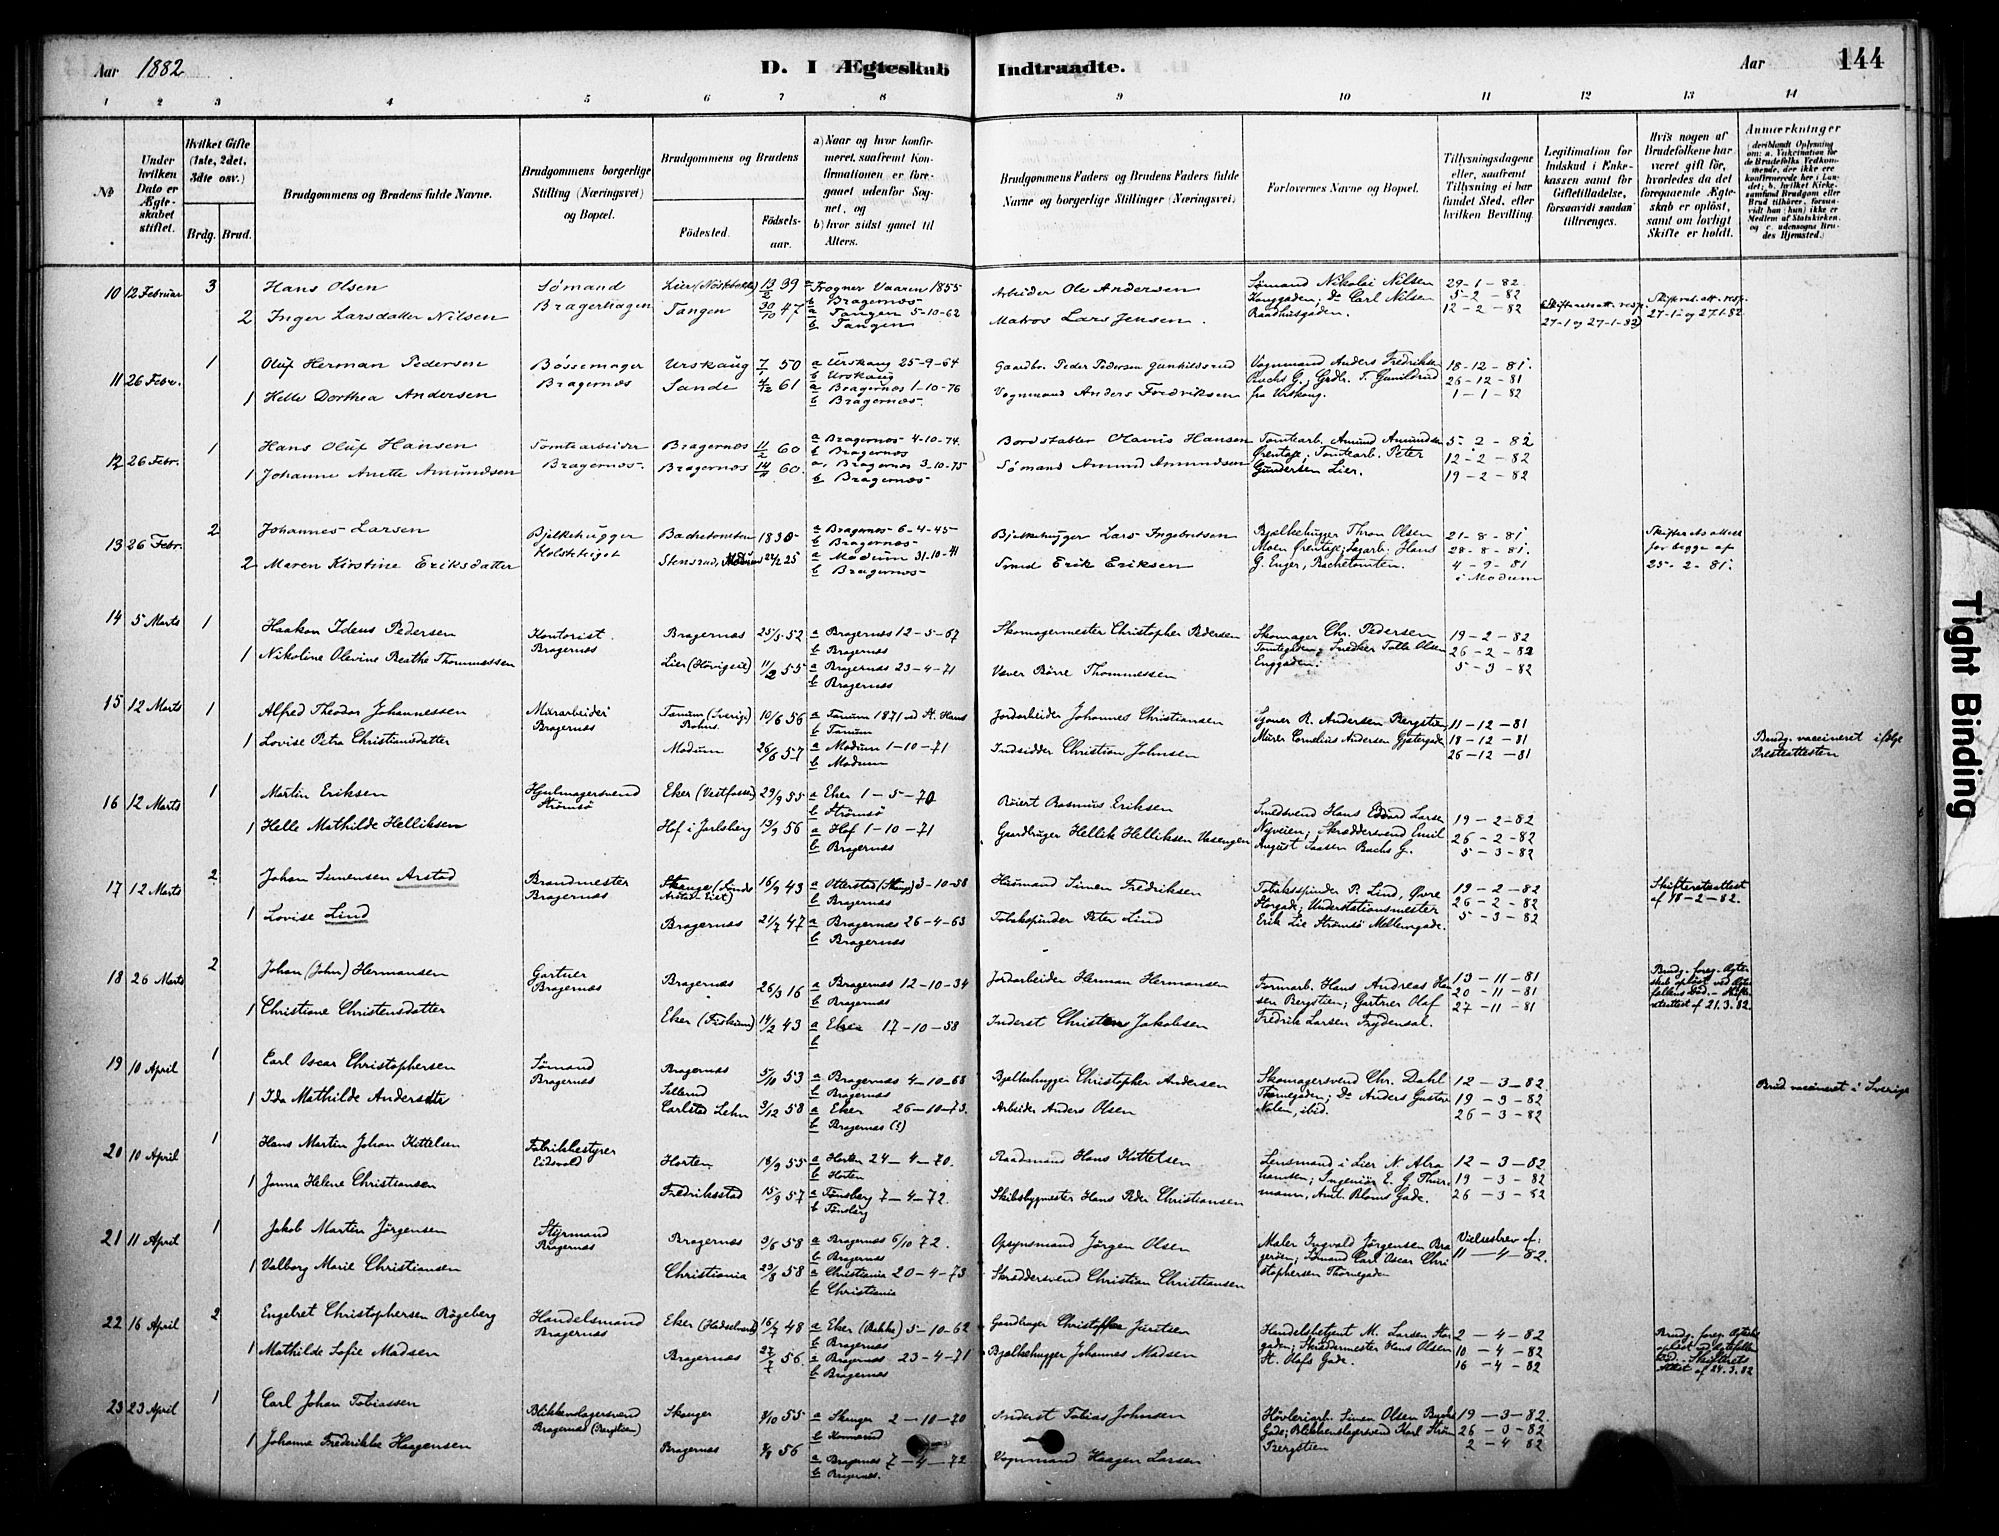 Aar 1882
D. I Ægteskab Indtraadte.
Aar 144
1 2 3 4 5 6 7 8 9 10 11 12 13 14
No
Under hvilken Dato er Ægteskabet stiftet.
Hvilket Gifte (1ste, 2det, 3die osv.)
Brdg. Brud.
Brudgommens og Brudens fulde Navne.
Brudgommens borgerlige Stilling (Næringsvei) og Bopæl.
Brudgommens og Brudens
Födested. Födsels-aar.
a) Naar og hvor konfirmeret, saafremt Konfirmationen er foregaaet udenfor Sognet, og
b) hvor sidst gaaet til Alters.
Brudgommens Faders og Brudens Faders fulde Navne og borgerlige Stillinger (Næringsvei)
Forlovernes Navne og Bopæl.
Tillysningsdagene eller, saafremt Tillysning ei har fundet Sted, efter hvilken Bevilling.
Legitimation for Indskud i Enkekassen samt for Giftetilladelse, forsaavidt saadan tiltrænges.
Hvis nogen af Brudefolkene har været gift för, hvorledes da det foregaaende Ægteskab er oplöst, samt om lovligt Skifte er holdt.
Anmærkninger
10 12 Februar 3 Hans Olsen Sømand Lier 13/2 39 a Frogner Vaaren 1855 Arbeider Ole Andersen Sømand Nikolai Nilsen 29-1-82
Bragerhagen b Bragernæs Konggaden; Do Carl Nilsen 5-2-82
2 Inger Larsdatter Nilsen Tangen 30/10 47 a Tangen 5-10-62 Matros Lars Jensen. Raadhusgaden. 12-2-82
b Tangen 27-1 og 27-1-82 27-1 og 27-1-82
11 26 Febr. 1 Oluf Herman Pedersen Bøssemager Urskaug 7/1 50 a Urskaug 25-9-64 Gaardbr. Peder Pedersen Gunhildsrud Vognmand Anders Fredriksen 18-12-81
Bragernæs b Urskaug Bachs G.; Grdbr. T. Gunildsrud 26-12-81
1 Helle Dorthea Andersen Sande 4/2 61 a Bragernæs 1-10-76 Vognmand Anders Fredriksen fra Urskoug. 1-1-82
b Bragernæs
12 26 Febr. 1 Hans Oluf Hansen Tomtearbeider Bragernæs 11/2 60 a Bragernæs 4-10-74. Bordstabler Olavus Hansen Tomtearb. Amund Amundsen 5-2-82
Bragernæs b Bragernæs Ørentaje; Tomtearb. Peter 12-2-82
1 Johanne Anette Amundsen Bragernæs 60. a Bragernæs 3-10-75 Sømand Amund Amundsen Gundersen Lier. 19-2-82
b Bragernæs
13 26 Febr. 2 Johannes Larsen Bjelkehugger Bachetomten 1830 a Bragernæs 6-4-45 Bjælkehugger Lars Ingebretsen Bjælkehugger Thron Olsen 21-8-81 Skifteretsattest
b Bragernæs Moen Ørentaje; Sagarb. Hans 28-8-81. for begge af
2 Maren Kirstine Eriksdatter Stensrud, Modum 25 a Modum 31-10-41 Smed Erik Eriksen G. Enger, Bachetomten. 4-9-81 25-2-81.
b Bragernæs i Modum
14 5 Marts 1 Haakon Ideus Pedersen Kontorist. Bragernæs 25/5 52 a Bragernæs 12-5-67 Skomagermester Christopher Pedersen Skomager Chr. Pedersen 19-2-82
Bragernæs b Bragernæs Tomtegaden; Snedker Tolle Olsen 26-2-82
1 Nikoline Olevine Beathe Thommessen Lier 11/2 55 a Bragernæs 23-4-71 Væver Børre Thommessen Enggaden. 5-3-82
b Bragernæs
15 12 Marts 1 Alfred Theodor Johannessen Murarbeider Tanum (Sverige) 10/6 56 a Tanum 1871 ved St. Hans Jordarbeider Johannes Christiansen R. Andersen Bergstien 11-12-81
Bragernæs Bohus. b Tanum Murer Cornelius Andersen Gjetergade 18-12-81
1 Lovise Petra Christiansdatter Modum 26/6 57 a Modum 1-10-71 Indsidder Christian Johnsen 26-12-81 Brudg. vaccineret ifølge Presteattesten
b Modum
16 12 Marts 1 Martin Eriksen Hjulmagersvend Eker (Vestfossen) 29/9 55 a Eker 1-5-70 Røiert Rasmus Eriksen Smedsvend Hans Edvard Larsen 19-2-82
Strömsö b Strömsö Nyveien; Skræddersvend Emil 26-2-82
1 Helle Mathilde Helliksen Hof i Jarlsberg 19/9 56 a Hof 1-10-71 Gaardbruger Hellik Helliksen Vasengen August Bachs G. 5-3-82
b Bragernæs
17 12 Marts 2 Johan Simensen Arstad Brandmester Stange 16/9 43 a Ottestad 3-10-58 Husmand Simen Fredriksen Tobaksspinder P. Lind, Øvre 19-2-82 Skifteretsattest
Bragernæs b Bragernæs Storgade; Understationsmester 26-2-82 af 18-2-82.
1 Lovise Lind Bragernæs 21/7 47 a Bragernæs 26-4-63 Tobakspinder Peter Lind Erik Lie Strømsö Mellemgade. 5-3-82
b Bragernæs
18 26 Marts 2 Johan (John) Hermansen Gartner Bragernæs 26/3 16 a Bragernæs 12-10-34 Jordarbeider Herman Hermansen Formarb. Hans Andreas Han 13-11-81
Bragernæs b Bragernæs sen Bergstien; Gartner Olaf 20-11-81
1 Christiane Christensdatter Eker (Fiskum) 14/2 43 a Eker 17-10-58 Inderst Christens Jakobsen Fredrik Larsen Frydensal. 27-11-81
b
19 10 April 1 Carl Oscar Christophersen Sømand Bragernæs 5/10 53 a Bragernæs 4-10-68 Bjælkehugger Christopher Andersen Skomagersvend Chr. Dahl 12-3-82
Bragernæs b Bragernæs Thornegaden; Do Anders Gustav 19-3-82 Brud vaccineret i Sverige
1 Ida Mathilde Andersdtr Carlstad Lehn 3/12 58 a Eker 26-10-73. Arbeider Anders Olsen ibid. 26-3-82
b Bragernæs (?)
20 10 April 1 Hans Martin Johan Kittelsen Fabrikbestyrer Horten 18/9 55 a Horten 24-4-70. Raadmand Hans Kittelsen Lensmand i Lier N. Abra 12-3-82
Eidsvold b Horten hamsen; Ingeniör E. G. Thur 19-3-82
1 Janna Helene Christiansen Fredriksstad 15/9 57 a Tønsberg 7-4-72. Skibsbygmester Hans Peder Christiansen mann, Ant. Bloms Gade. 26-3-82
b Tønsberg
21 11 April 1 Jakob Martin Jørgensen Styrmand Bragernæs 9/6 58 a Bragernæs 6/10 72. Opsynsmand Jørgen Olsen Maler Ingvald Jørgensen Bra Vielsesbrev af:
Bragernæs b Bragernæs gerøen; Sømand Carl Oscar Chri 11-4-82.
1 Valborg Marie Christiansen Christiania 29/8 58 a Christiania 20-4-73 Skræddersvend Christian Christiansen stophersen Thornegaden
b Christiania
22 16 April 2 Engebret Christophersen Røgeberg Handelsmand Eker 16/7 48 a Eker (Bakke) 5-10-62 Gaardbruger Handelsbetjent M. Larsen Stor 2-4-82
Bragernæs b Bragernæs gaden; Skrædermester Hans Olsen 10-4-82
1 Mathilde Sofie Madsen Bragernæs 27/7 56 a Bragernæs 23-4-71 Bjælkehugger Johannes Madsen St. Olafs Gade. 16-4-82
b Bragernæs
23 23 April 1 Carl Johan Tobiassen Blikkenslagersvend Skoger 55 a Skoger 2-10-70 Inderst Tobias Johnsen Høvleriarb. Simen Olsen Bachs 19-3-82.
Bragernæs (Bergstien) b Konnerud Gade; Blikkenslagersvend Karl Strøm 26-3-82
1 Johanne Frederikke Haagensen Bragernæs 56 a Bragernæs 7-4-72 Vognmand Haagen Larsen Bergstien 2-4-82
b Bragernæs.
Tight Binding